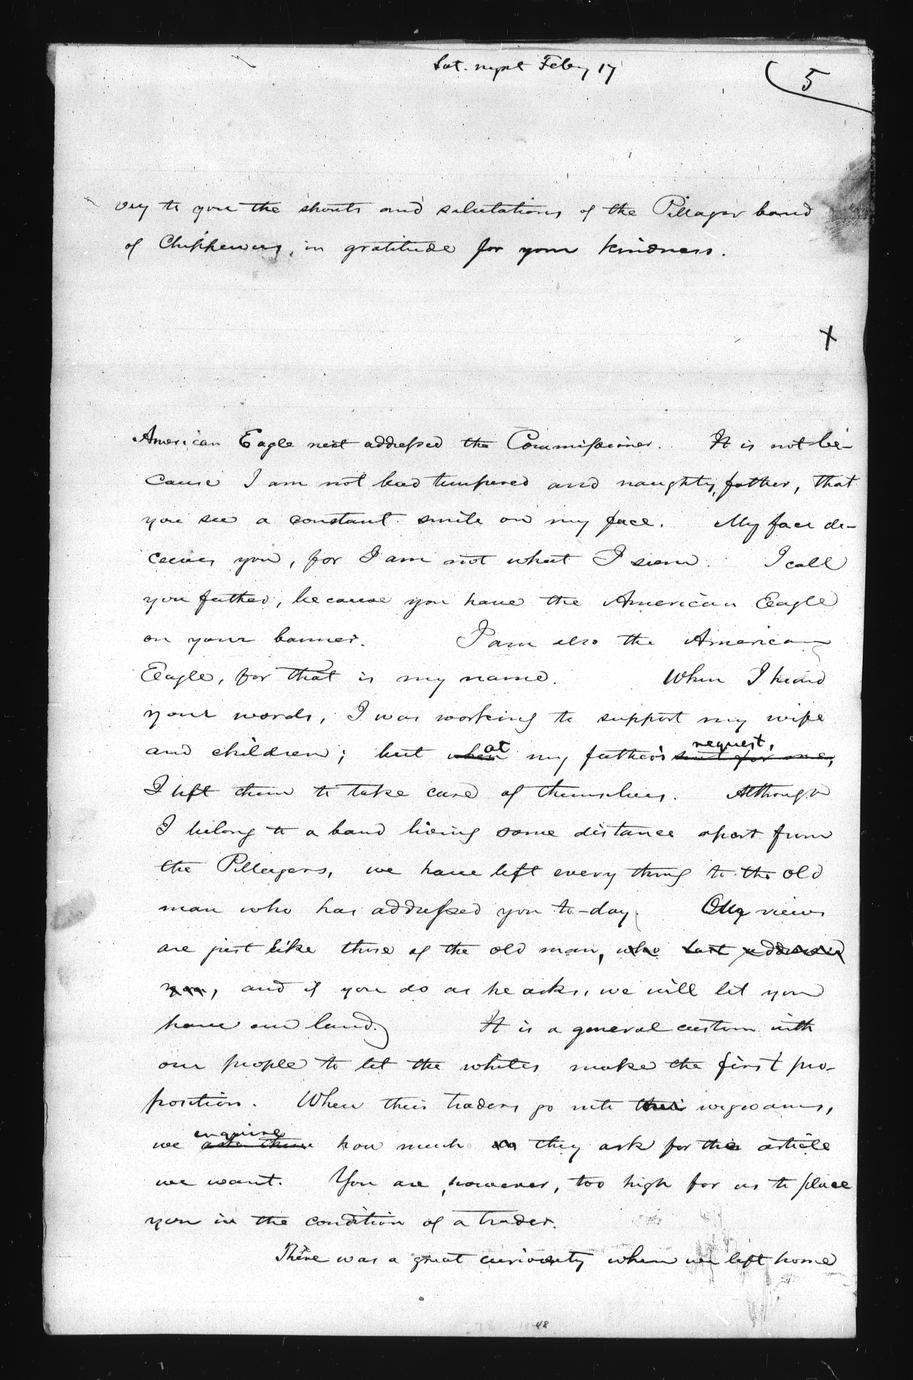 Sat. night Feby 17
5
vey to you the shouts and salutations of the Pillager band
of Chippewas, in gratitude for your kindness.
X
American Eagle next addressed the Commissioner. It is not be-
cause I am not bad tempered and naughty, father, that
you see a constant smile on my face. My face de-
ceives you, for I am not what I seem. I call
you father, because you have the American Eagle
on your banner. I am also the American
Eagle, for that is my name. When I heard
your words, I was working to support my wife
at request,
and children; but when my father's sent for me,
I left them to take care of themselves. Although
I belong to a band living some distance apart from
the Pillagers, we have left every thing to the old
man who has addressed you to-day. Our views
are just like those of the old man, who last addressed
you, and if you do as he asks, we will let you
have our land. It is a general custom with
our people to let the whites make the first pro-
position. When their traders go into their wigwams,
enquire
we ask them how much they ask for the article
we want. You are, however, too high for us to place
you in the condition of a trader.
There was a great curiosity when we left home
48